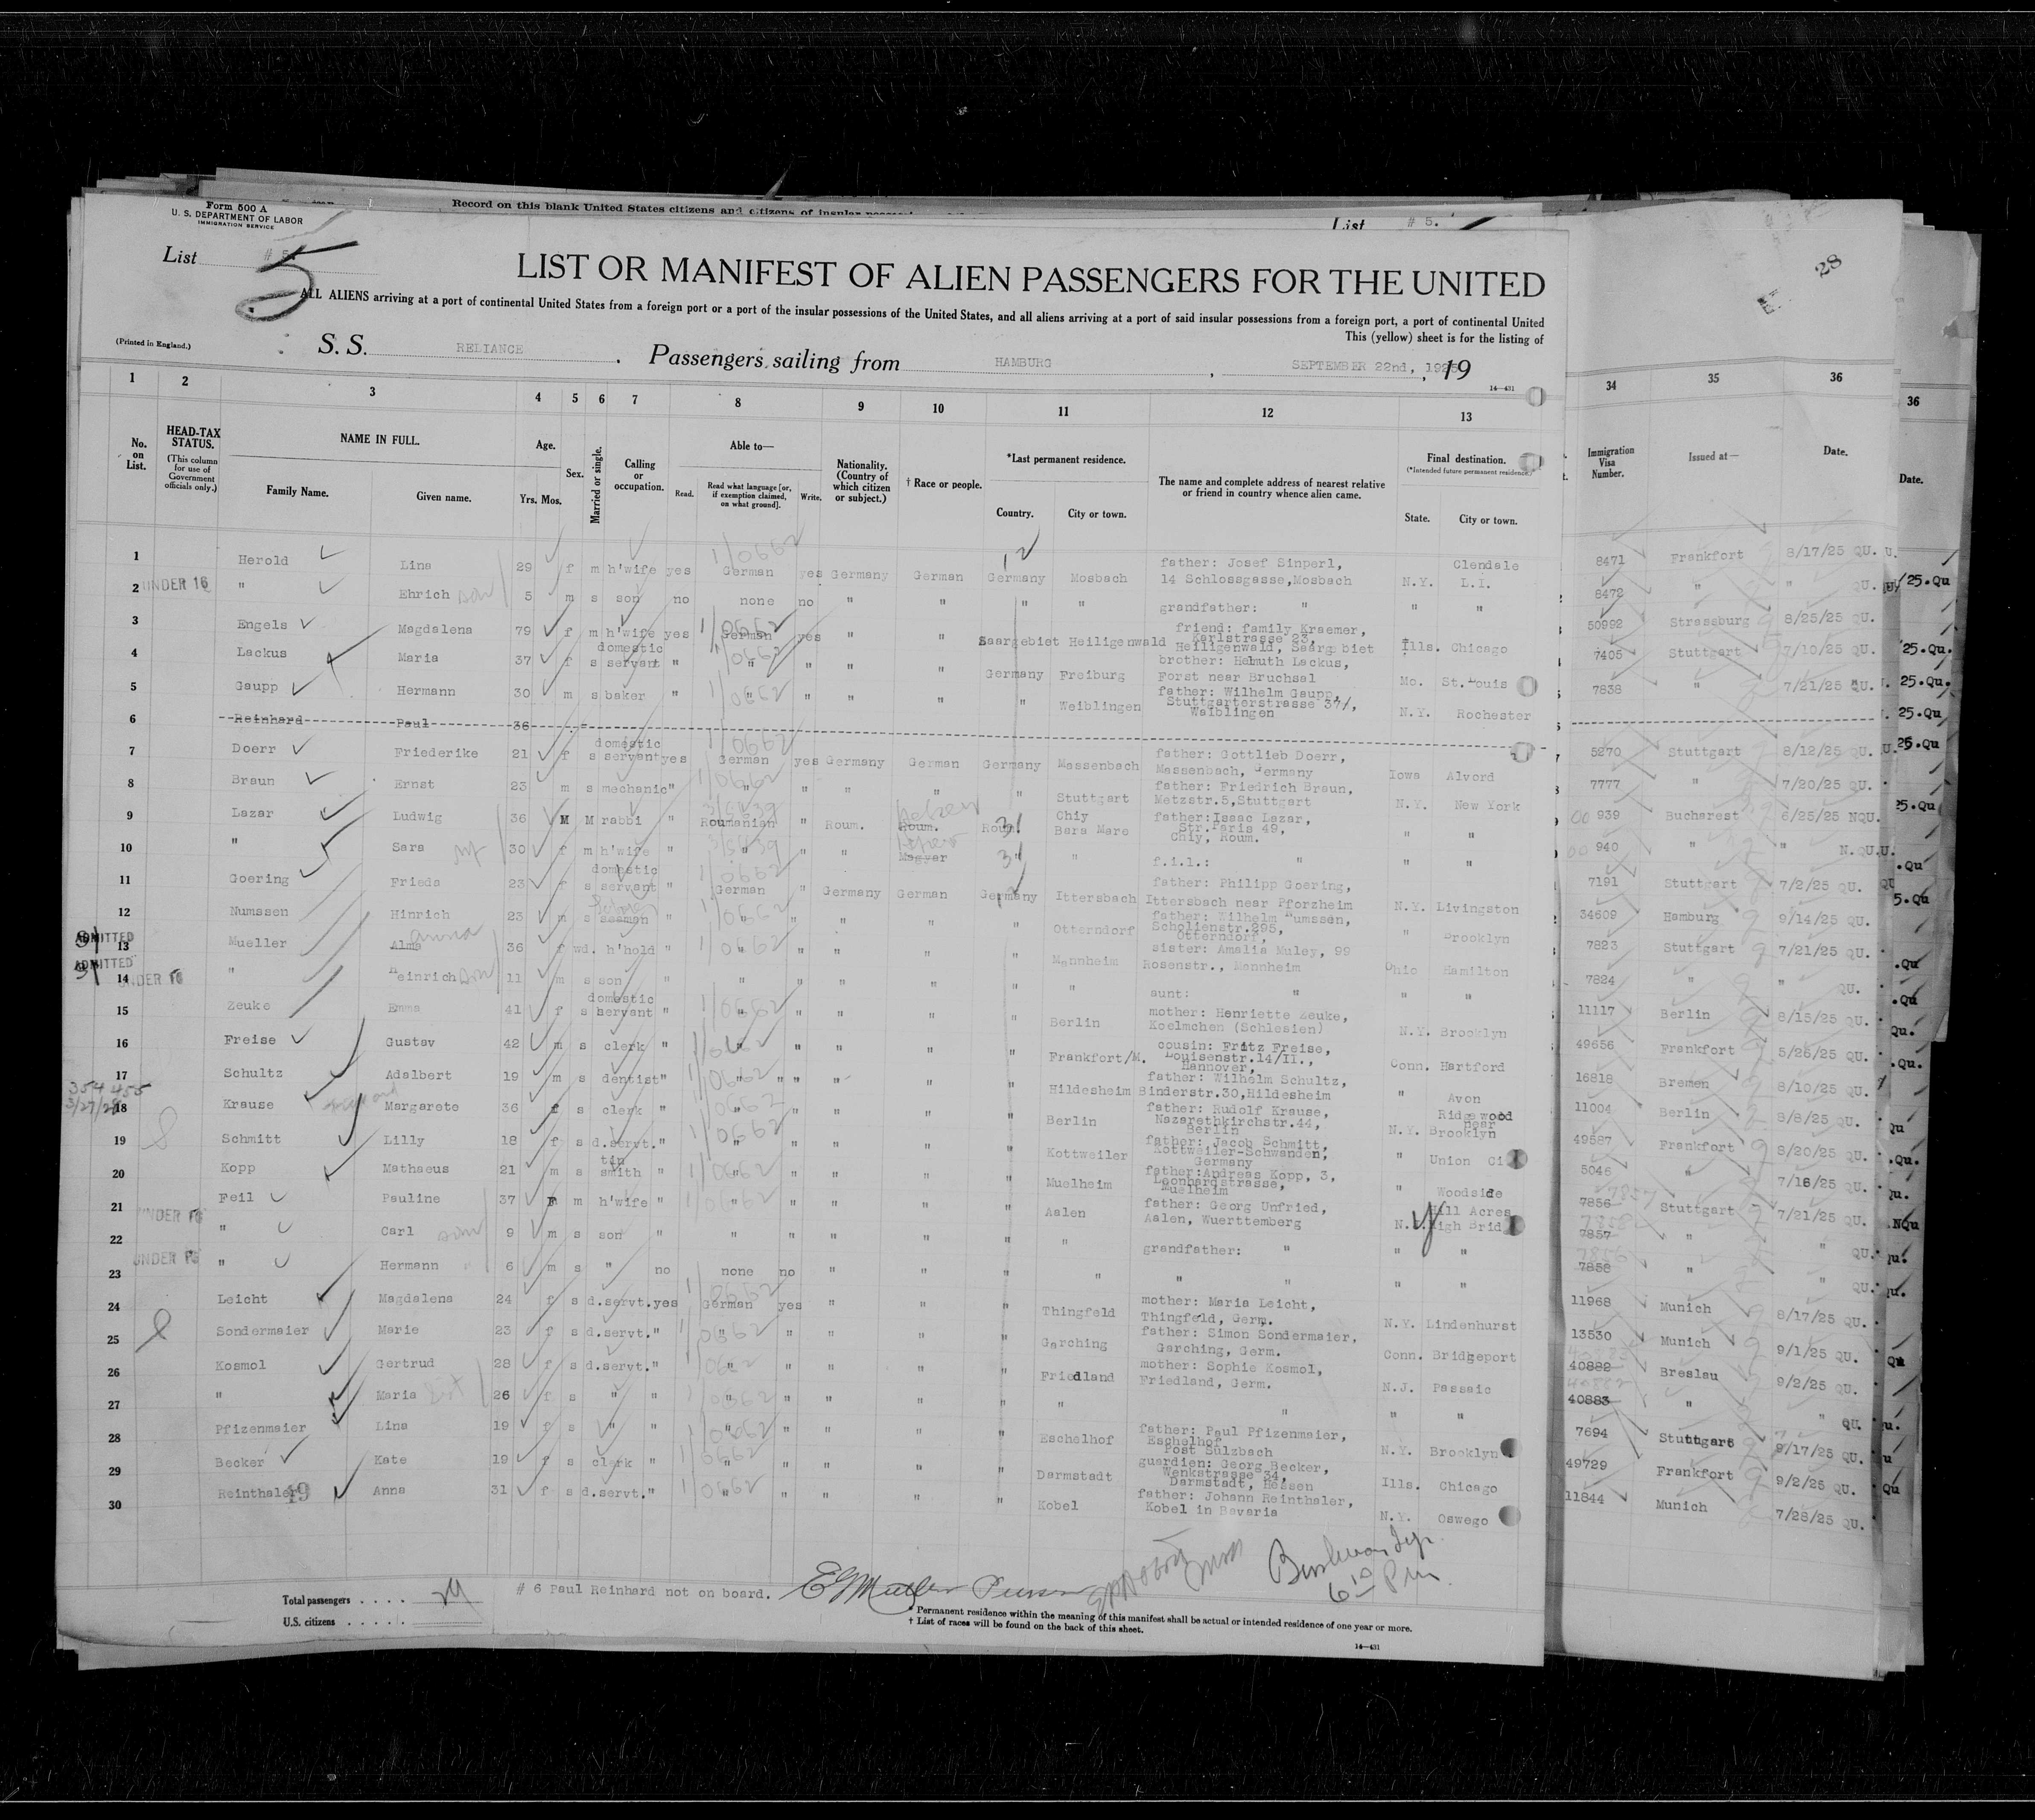 Record on this blank United States citizens and citizens of insular
Form 500 A
U. S. DEPARTMENT OF LABOR
IMMIGRATION SERVICE
List # 5.
List # 5.
5
28
LIST OR MANIFEST OF ALIEN PASSENGERS FOR THE UNITED
ALL ALIENS arriving at a port of continental United States from a foreign port or a port of the insular possessions of the United States, and all aliens arriving at a port of said insular possessions from a foreign port, a port of continental United
This (yellow) sheet is for the listing of
(Printed in England.)
S. S. RELIANCE. Passengers sailing from HAMBURG, SEPTEMBER 22nd, 1925, 19
14—431
1 2 3 4 5 6 7 8 9 10 11 12 13 34 35 36 36
No. on List.
HEAD-TAX STATUS.
(This column for use of Government officials only.)
NAME IN FULL.
Family Name. Given name.
Age.
Yrs. Mos.
Sex.
Married or single.
Calling or occupation.
Able to—
Read. Read what language [or, if exemption claimed, on what ground]. Write.
Nationality. (Country of which citizen or subject.)
† Race or people.
*Last permanent residence.
Country. City or town.
The name and complete address of nearest relative or friend in country whence alien came.
Final destination.
(*Intended future permanent residence.)
State. City or town.
Immigration Visa Number.
Issued at—
Date.
Date.
1 Herold Lina 29 f m h'wife yes German yes Germany German Germany Mosbach father: Josef Sinperl, 14 Schlossgasse,Mosbach N.Y. Clendale L.I. 8471 Frankfort 8/17/25 QU.
2 UNDER 16 " Ehrich son 5 m s son no none no " " " " grandfather: " " " 8472 " " QU.
3 Engels Magdalena 79 f m h'wife yes German yes " " Saargebiet Heiligenwald friend: family Kraemer, Karlstrasse 23, Heiligenwald, Saargebiet Ills. Chicago 50992 Strassburg 8/25/25 QU.
4 Lackus Maria 37 f s domestic servant " " " " " Germany Freiburg brother: Helmuth Lackus, Forst near Bruchsal Mo. St.Louis 7405 Stuttgart 7/10/25 QU.
5 Gaupp Hermann 30 m s baker " " " " " " Weiblingen father: Wilhelm Gaupp, Stuttgarterstrasse 37/, Waiblingen N.Y. Rochester 7838 " 7/21/25 QU.
6 Reinhard Paul 36
7 Doerr Friederike 21 f s domestic servant yes German yes Germany German Germany Massenbach father: Gottlieb Doerr, Massenbach, Germany Iowa Alvord 5270 Stuttgart 8/12/25 QU.
8 Braun Ernst 23 m s mechanic " " " " " " Stuttgart father: Friedrich Braun, Metzstr.5,Stuttgart N.Y. New York 7777 " 7/20/25 QU.
9 Lazar Ludwig 36 M M rabbi " Roumanian " Roum. Roum. Roum. Chiy Bara Mare father:Isaac Lazar, Str.Paris 49, Chiy, Roum. " " 939 Bucharest 6/25/25 NQU.
10 " Sara 30 f m h'wife " " " " Magyar " " f.i.l.: " " " 940 " " N.QU.
11 Goering Frieda 23 f s domestic servant " German " Germany German Germany Ittersbach father: Philipp Goering, Ittersbach near Pforzheim N.Y. Livingston 7191 Stuttgart 7/2/25 QU.
12 Numssen Hinrich 23 m s seaman " " " " " " Otterndorf father: Wilhelm Numssen, Scholienstr.295, Otterndorf, " Brooklyn 34609 Hamburg 9/14/25 QU.
13 ADMITTED Mueller Alma anna 36 f wd. h'hold " " " " " " Mannheim sister: Amalia Muley, 99 Rosenstr., Mannheim Ohio Hamilton 7823 Stuttgart 7/21/25 QU.
14 ADMITTED UNDER 16 " Heinrich son 11 m s son " " " " " " " aunt: " " " 7824 " " QU.
15 Zeuke Emma 41 f s domestic servant " " " " " " Berlin mother: Henriette Zeuke, Koelmchen (Schlesien) N.Y. Brooklyn 11117 Berlin 8/15/25 QU.
16 Freise Gustav 42 m s clerk " " " " " " Frankfort/M. cousin: Fritz Freise, Louisenstr.14/II., Hannover, Conn. Hartford 49656 Frankfort 5/26/25 QU.
17 Schultz Adalbert 19 m s dentist " " " " " " Hildesheim father: Wilhelm Schultz, Binderstr.30,Hildesheim " Avon 16818 Bremen 8/10/25
354 455
3/27/28
18 Krause Margarete 36 f s clerk " " " " " " Berlin father: Rudolf Krause, Nazarethkirchstr.44, Berlin N.Y. Ridgewood near Brooklyn 11004 Berlin 8/8/25 QU.
19 Schmitt Lilly 18 f s d.servt. " " " " " " Kottweiler father: Jacob Schmitt, Kottweiler-Schwanden, Germany " Union Ci 49587 Frankfort 8/20/25 QU.
20 Kopp Mathaeus 21 m s tin smith " " " " " " Muelheim father:Andreas Kopp, 3, Leonhardstrasse, Muelheim " Woodside 5046 " 7/16/25 QU.
21 Feil Pauline 37 f m h'wife " " " " " " Aalen father: Georg Unfried, Aalen, Wuerttemberg N. Hill Acres High Brid 7856 7857 Stuttgart 7/21/25 QU.
22 UNDER 16 " Carl son 9 m s son " " " " " " " grandfather: " " " 7857 7858 " " QU.
23 UNDER 16 " Hermann " 6 m s " no none no " " " " " " " " 7858 7856 " " QU.
24 Leicht Magdalena 24 f s d.servt. yes German yes " " " Thingfeld mother: Maria Leicht, Thingfeld, Germ. N.Y. Lindenhurst 11968 Munich 8/17/25 QU.
25 Sondermaier Marie 23 f s d.servt. " " " " " " Garching father: Simon Sondermaier, Garching, Germ. Conn. Bridgeport 13530 Munich 9/1/25 QU.
26 Kosmol Gertrud 28 f s d.servt. " " " " " " Friedland mother: Sophie Kosmol, Friedland, Germ. N.J. Passaic 40882 Breslau 9/2/25 QU.
27 " Maria 26 f s " " " " " " " " " " " 40883 " " QU.
28 Pfizenmaier Lina 19 f s " " " " " " " Eschelhof father: Paul Pfizenmaier, Eschelhof Post Sulzbach N.Y. Brooklyn 7694 Stuttgart 9/17/25 QU.
29 Becker Kate 19 f s clerk " " " " " " Darmstadt guardian: Georg Becker, Wenkstrasse 34, Darmstadt, Hessen Ills. Chicago 49729 Frankfort 9/2/25 QU.
30 Reinthaler 49 Anna 31 f s d.servt. " " " " " " Kobel father: Johann Reinthaler, Kobel in Bavaria N.Y. Oswego 11844 Munich 7/28/25 QU.
Total passengers . . . .
U.S. citizens . . . . .
# 6 Paul Reinhard not on board.
* Permanent residence within the meaning of this manifest shall be actual or intended residence of one year or more.
† List of races will be found on the back of this sheet.
14—431